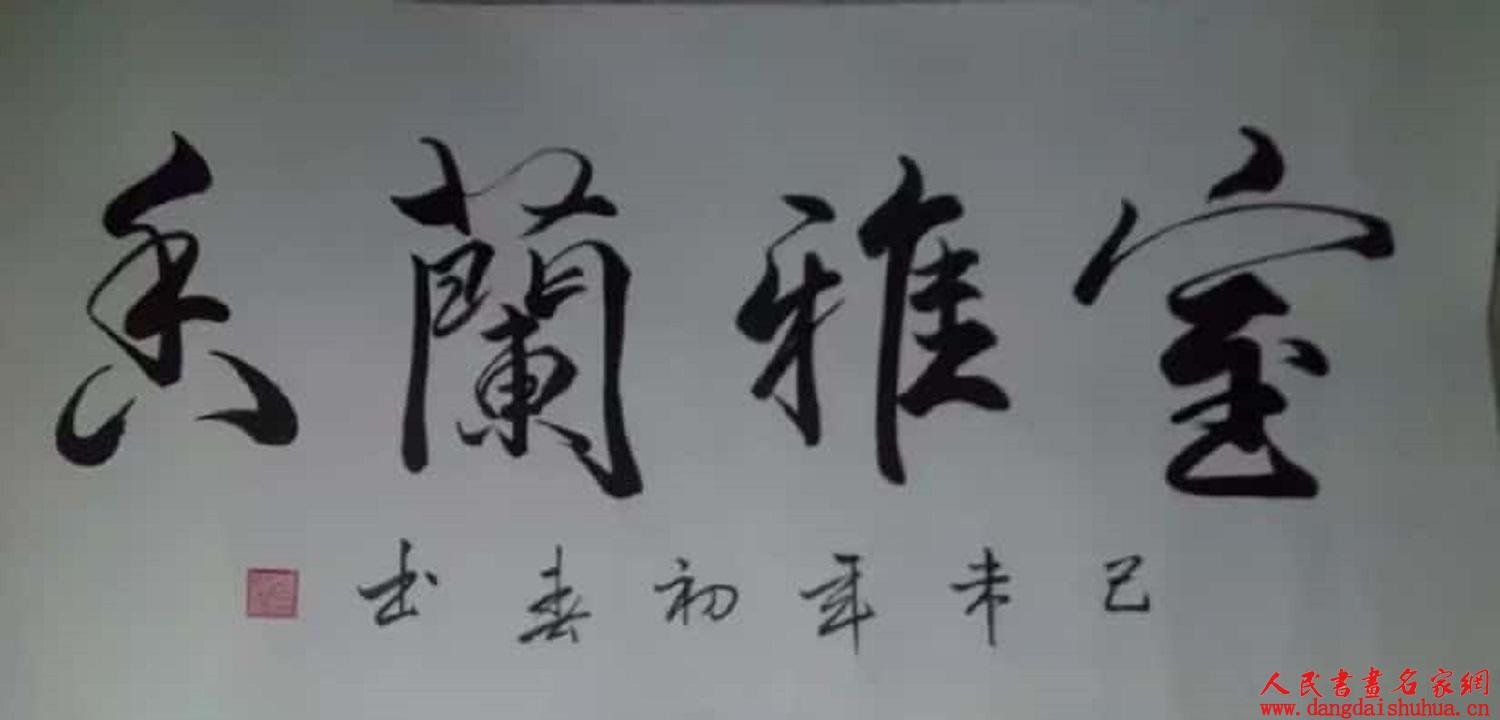 室雅蘭香
己未年初春书
人民書畫名家網
www.dangdaishuhua.cn